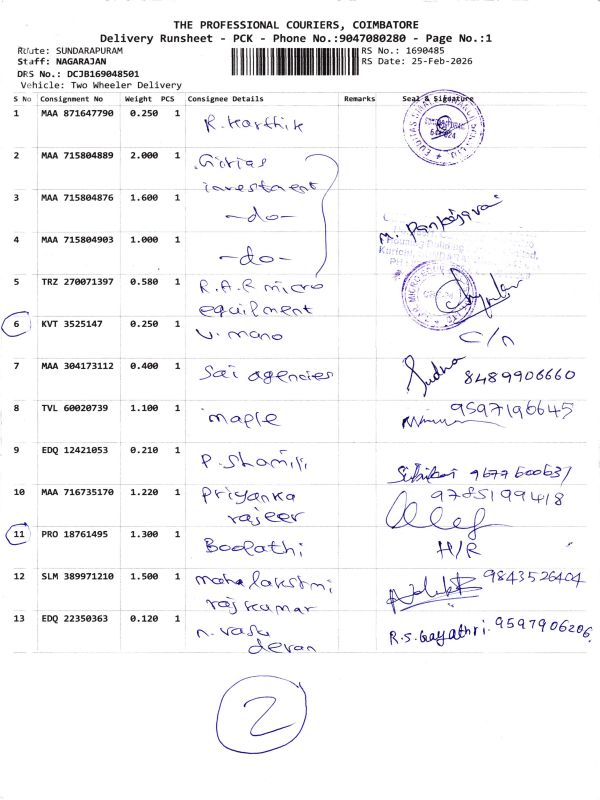 THE PROFESSIONAL COURIERS, COIMBATORE
Delivery Runsheet - PCK - Phone No.:9047080280 - Page No.:1
Route: SUNDARAPURAM
RS No.: 1690485
Staff: NAGARAJAN
RS Date: 25-Feb-2026
DRS No.: DCJB169048501
Vehicle: Two Wheeler Delivery
S No Consignment No Weight PCS Consignee Details Remarks Seal & Signature
1 MAA 871647790 0.250 1 R. Karthik
2 MAA 715804889 2.000 1 Girias
investment
3 MAA 715804876 1.600 1 -do-
M. Pankajavai
4 MAA 715804903 1.000 1 -do-
5 TRZ 270071397 0.580 1 R.A.R micro
equilment
6 KVT 3525147 0.250 1 V. mano C/n
7 MAA 304173112 0.400 1 Sai agencies Sudha 8489906660
8 TVL 60020739 1.100 1 maple 9597196645
9 EDQ 12421053 0.210 1 P. Shamili 9677600637
10 MAA 716735170 1.220 1 Priyanka 9785199418
rajeer
11 PRO 18761495 1.300 1 Boopathi H/R
12 SLM 389971210 1.500 1 mahalakshmi 9843526404
rajkumar
13 EDQ 22350363 0.120 1 n. vasu R.S. Gayathri. 9597906206
devan
2